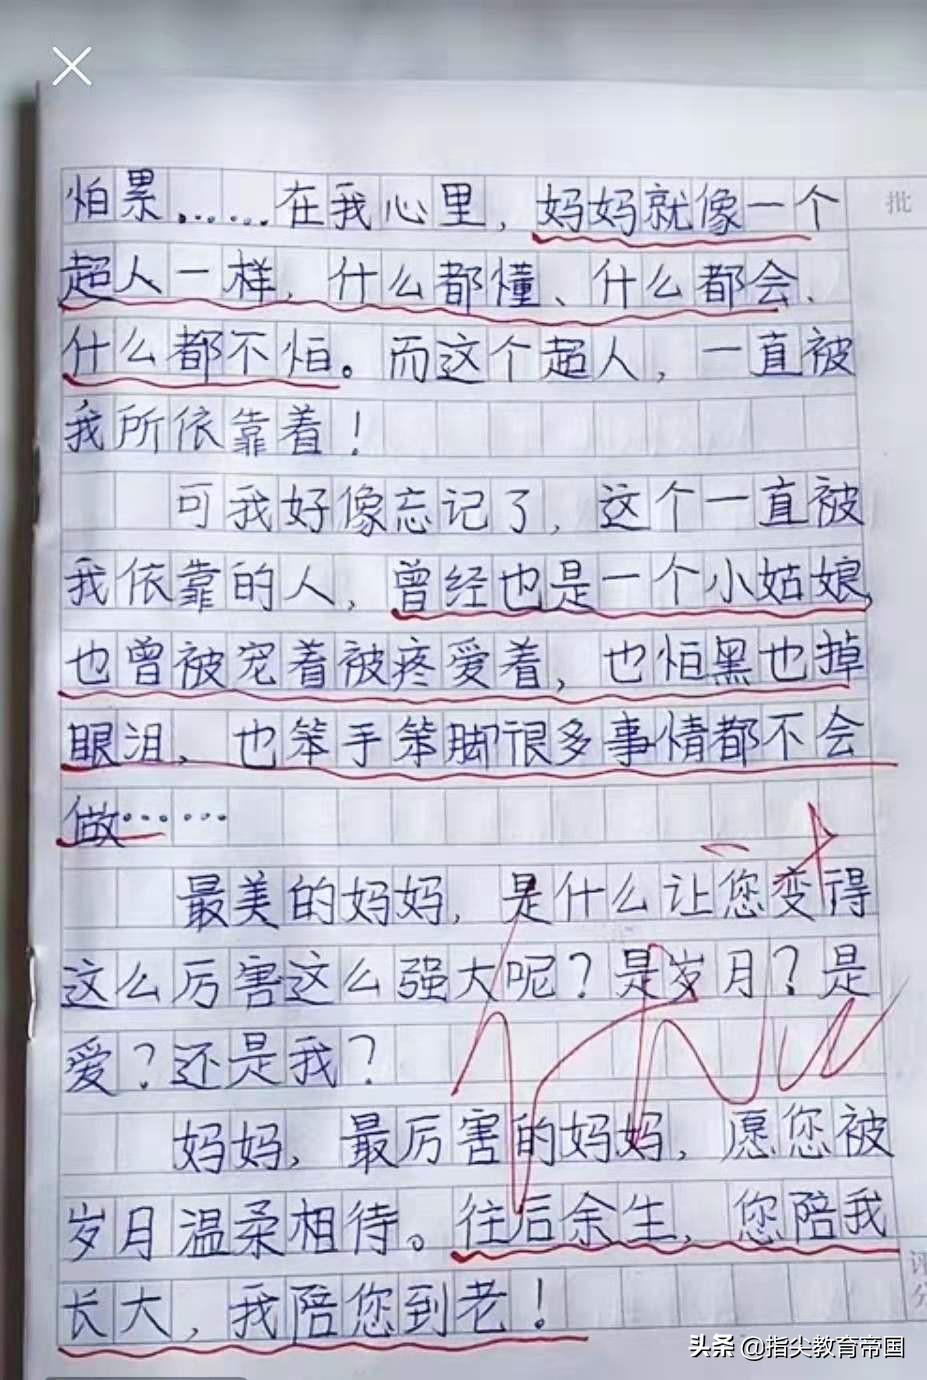 批
怕累……在我心里，妈妈就像一个
超人一样，什么都懂、什么都会、
什么都不怕。而这个超人，一直被
我所依靠着！
可我好像忘记了，这个一直被
我依靠的人，曾经也是一个小姑娘，
也曾被宠着被疼爱着，也怕黑也掉
眼泪，也笨手笨脚很多事情都不会
做……
最美的妈妈，是什么让您变得
这么厉害这么强大呢？是岁月？是
爱？还是我？
妈妈，最厉害的妈妈，愿您被
岁月温柔相待。往后余生，您陪我
长大，我陪您到老！
头条 @指尖教育帝国